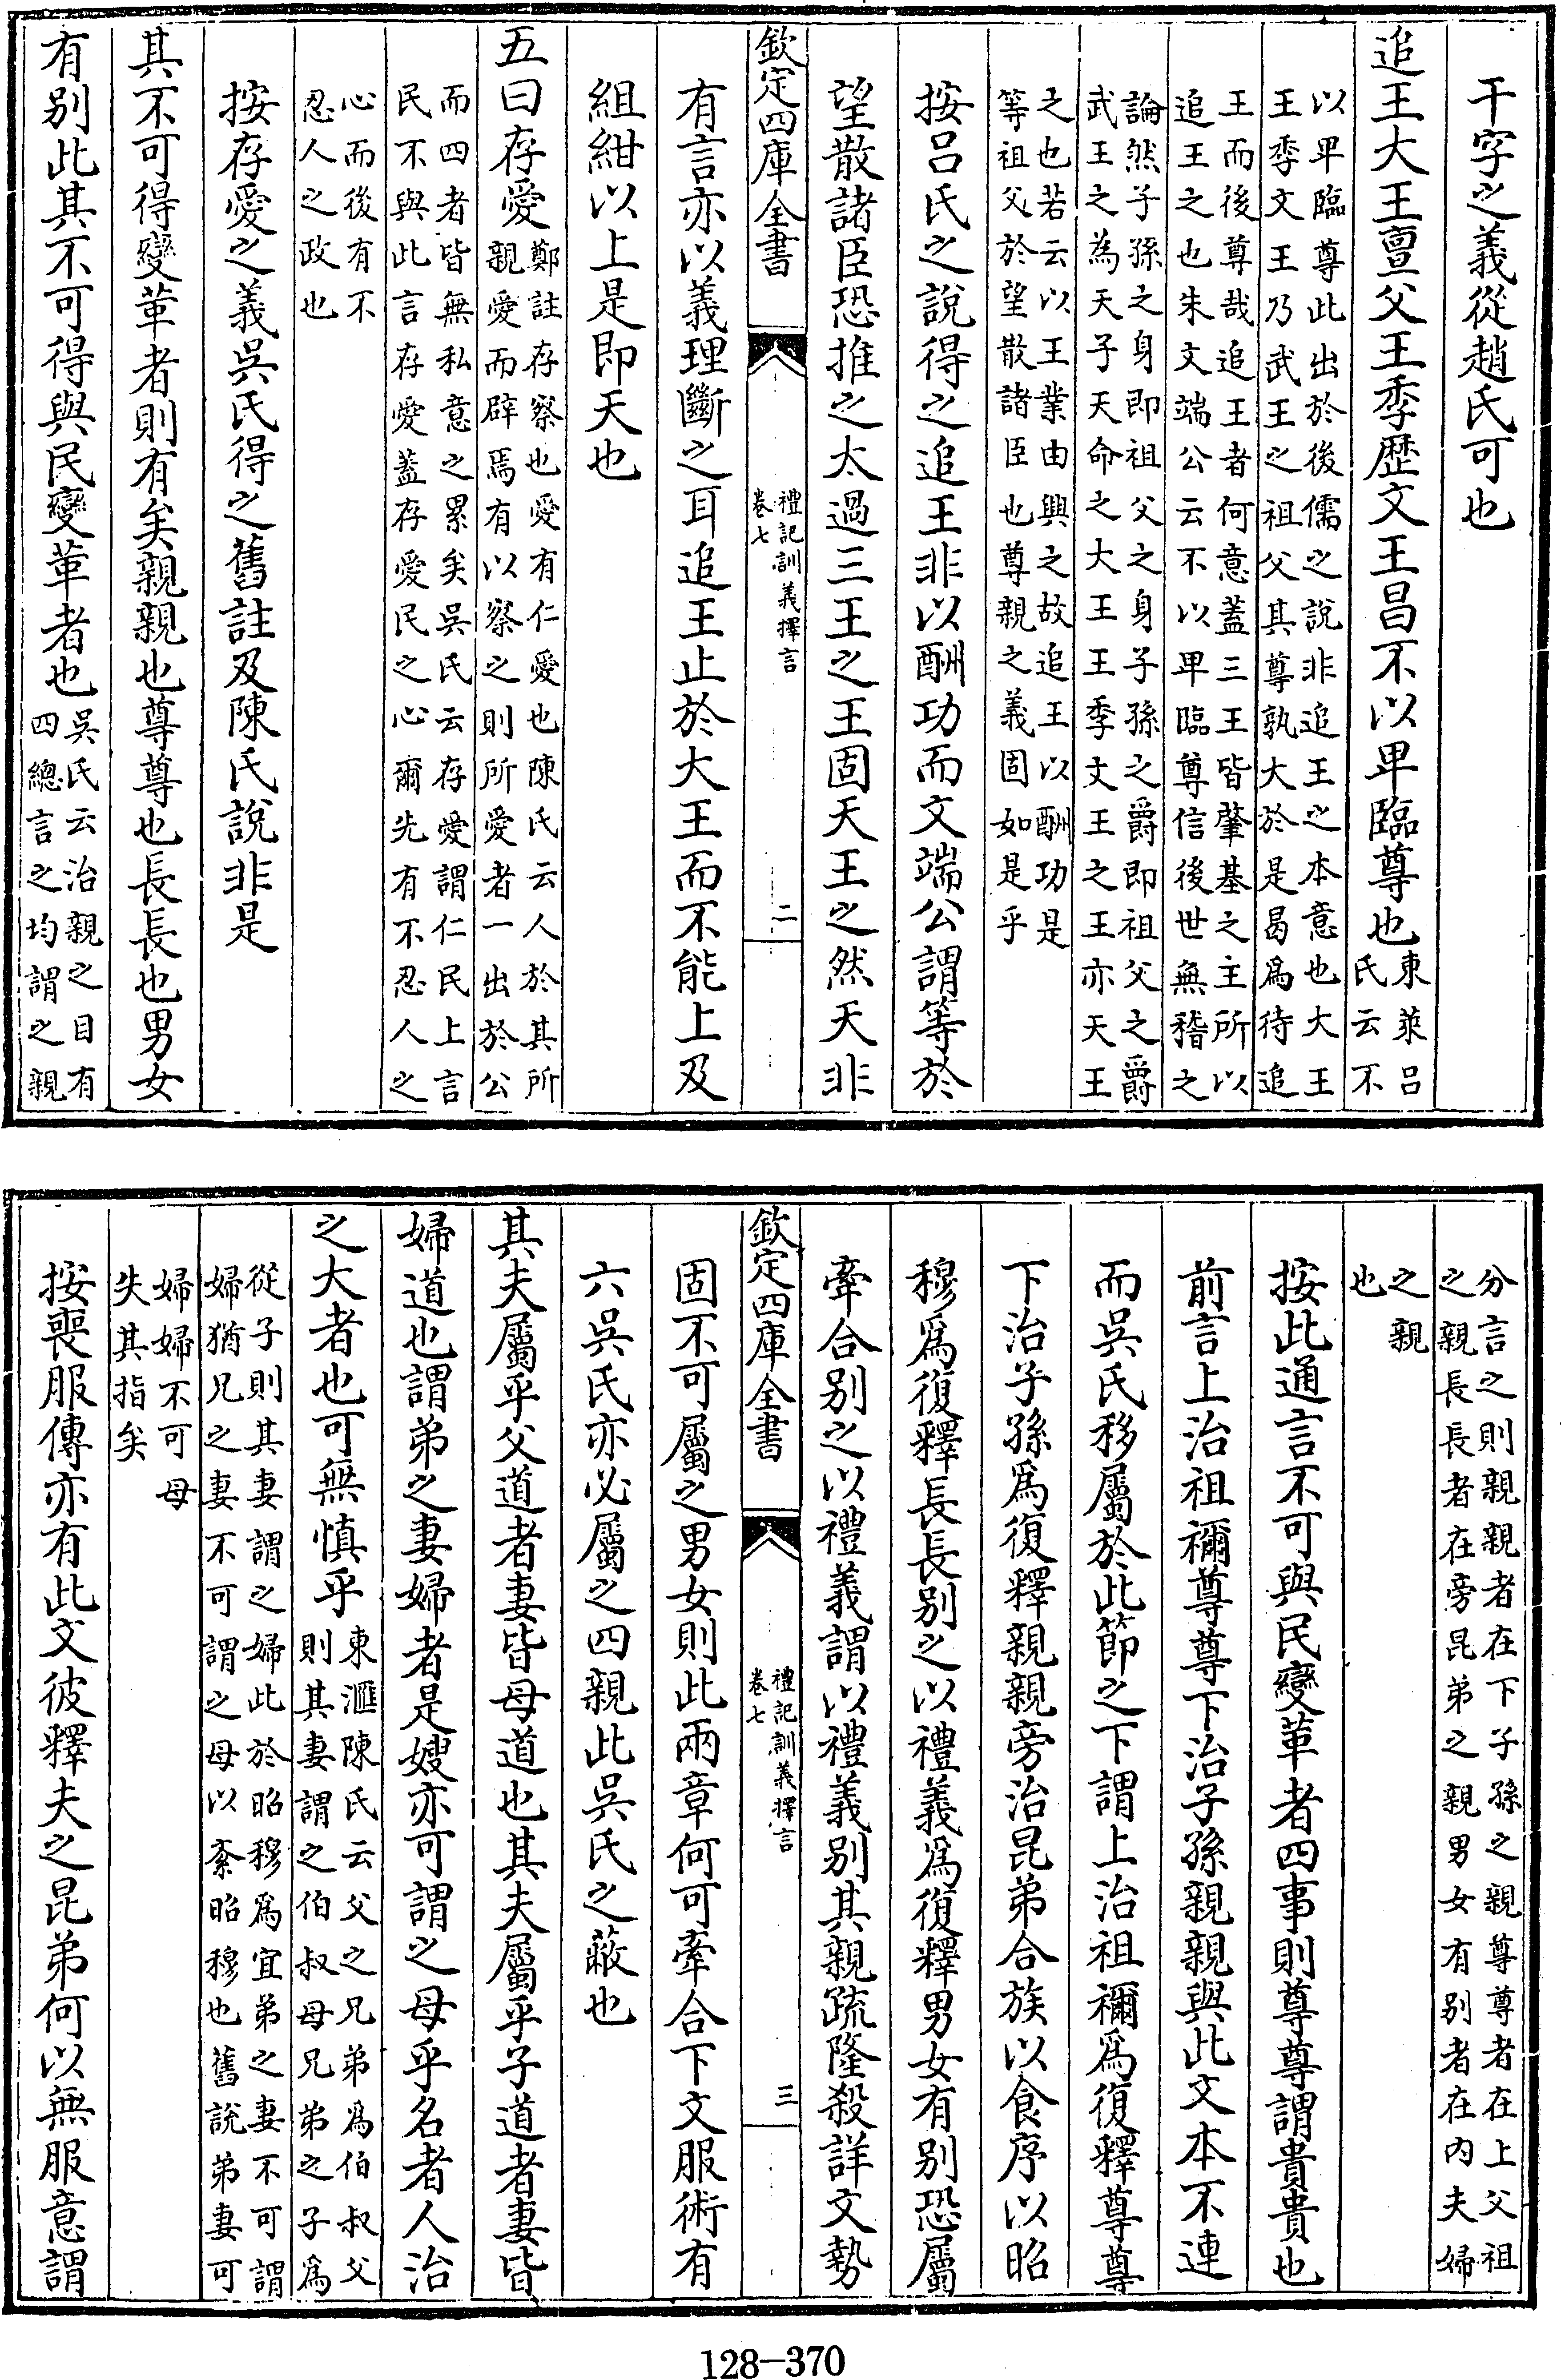 干字之義從趙氏可也
追王大王亶父王季歴文王昌不以卑臨尊也東萊呂氏云不
以卑臨尊此出於後儒之說非追王之本意也大王
王季文王乃武王之祖父其尊孰大於是曷爲待追
王而後尊哉追王者何意蓋三王皆肇基之主所以
追王之也朱文端公云不以卑臨尊信後世無稽之
論然子孫之身即祖父之身子孫之爵即祖父之爵
武王之為天子天命之大王王季文王之王亦天王
之也若云以王業由興之故追王以酬功是
等祖父於望散諸臣也尊親之義固如是乎
按呂氏之說得之追王非以酬功而文端公謂等於
望散諸臣恐推之太過三王之王固天王之然天非
欽定四庫全書
禮記訓義擇言
卷七
二
有言亦以義理斷之耳追王止於大王而不能上及
組紺以上是即天也
五曰存愛鄭註存察也愛有仁愛也陳氏云人於其所
親愛而辟焉有以察之則所愛者一出於公
而四者皆無私意之累矣吳氏云存愛謂仁民上言
民不與此言存愛蓋存愛民之心爾先有不忍人之
心而後有不
忍人之政也
按存愛之義吳氏得之舊註及陳氏說非是
其不可得變革者則有矣親親也尊尊也長長也男女
有別此其不可得與民變革者也吳氏云治親之目有
四總言之均謂之親
分言之則親親者在下子孫之親尊尊者在上父祖
之親長長者在旁昆弟之親男女有別者在内夫婦
之親
也
按此通言不可與民變革者四事則尊尊謂貴貴也
前言上治祖禰尊尊下治子孫親親與此文本不連
而吳氏移屬於此節之下謂上治祖禰爲復釋尊尊
下治子孫爲復釋親親旁治昆弟合族以食序以昭
穆爲復釋長長別之以禮義爲復釋男女有別恐屬
牽合別之以禮義謂以禮義別其親疏隆殺詳文勢
欽定四庫全書
禮記訓義擇言
卷七
三
固不可屬之男女則此兩章何可牽合下文服術有
六吳氏亦必屬之四親此吳氏之蔽也
其夫屬乎父道者妻皆母道也其夫屬乎子道者妻皆
婦道也謂弟之妻婦者是嫂亦可謂之母乎名者人治
之大者也可無慎乎東滙陳氏云父之兄弟爲伯叔父
則其妻謂之伯叔母兄弟之子爲
從子則其妻謂之婦此於昭穆爲宜弟之妻不可謂
婦猶兄之妻不可謂之母以紊昭穆也舊說弟妻可
婦婦不可母
失其指矣
按喪服傳亦有此文彼釋夫之昆弟何以無服意謂
128-370